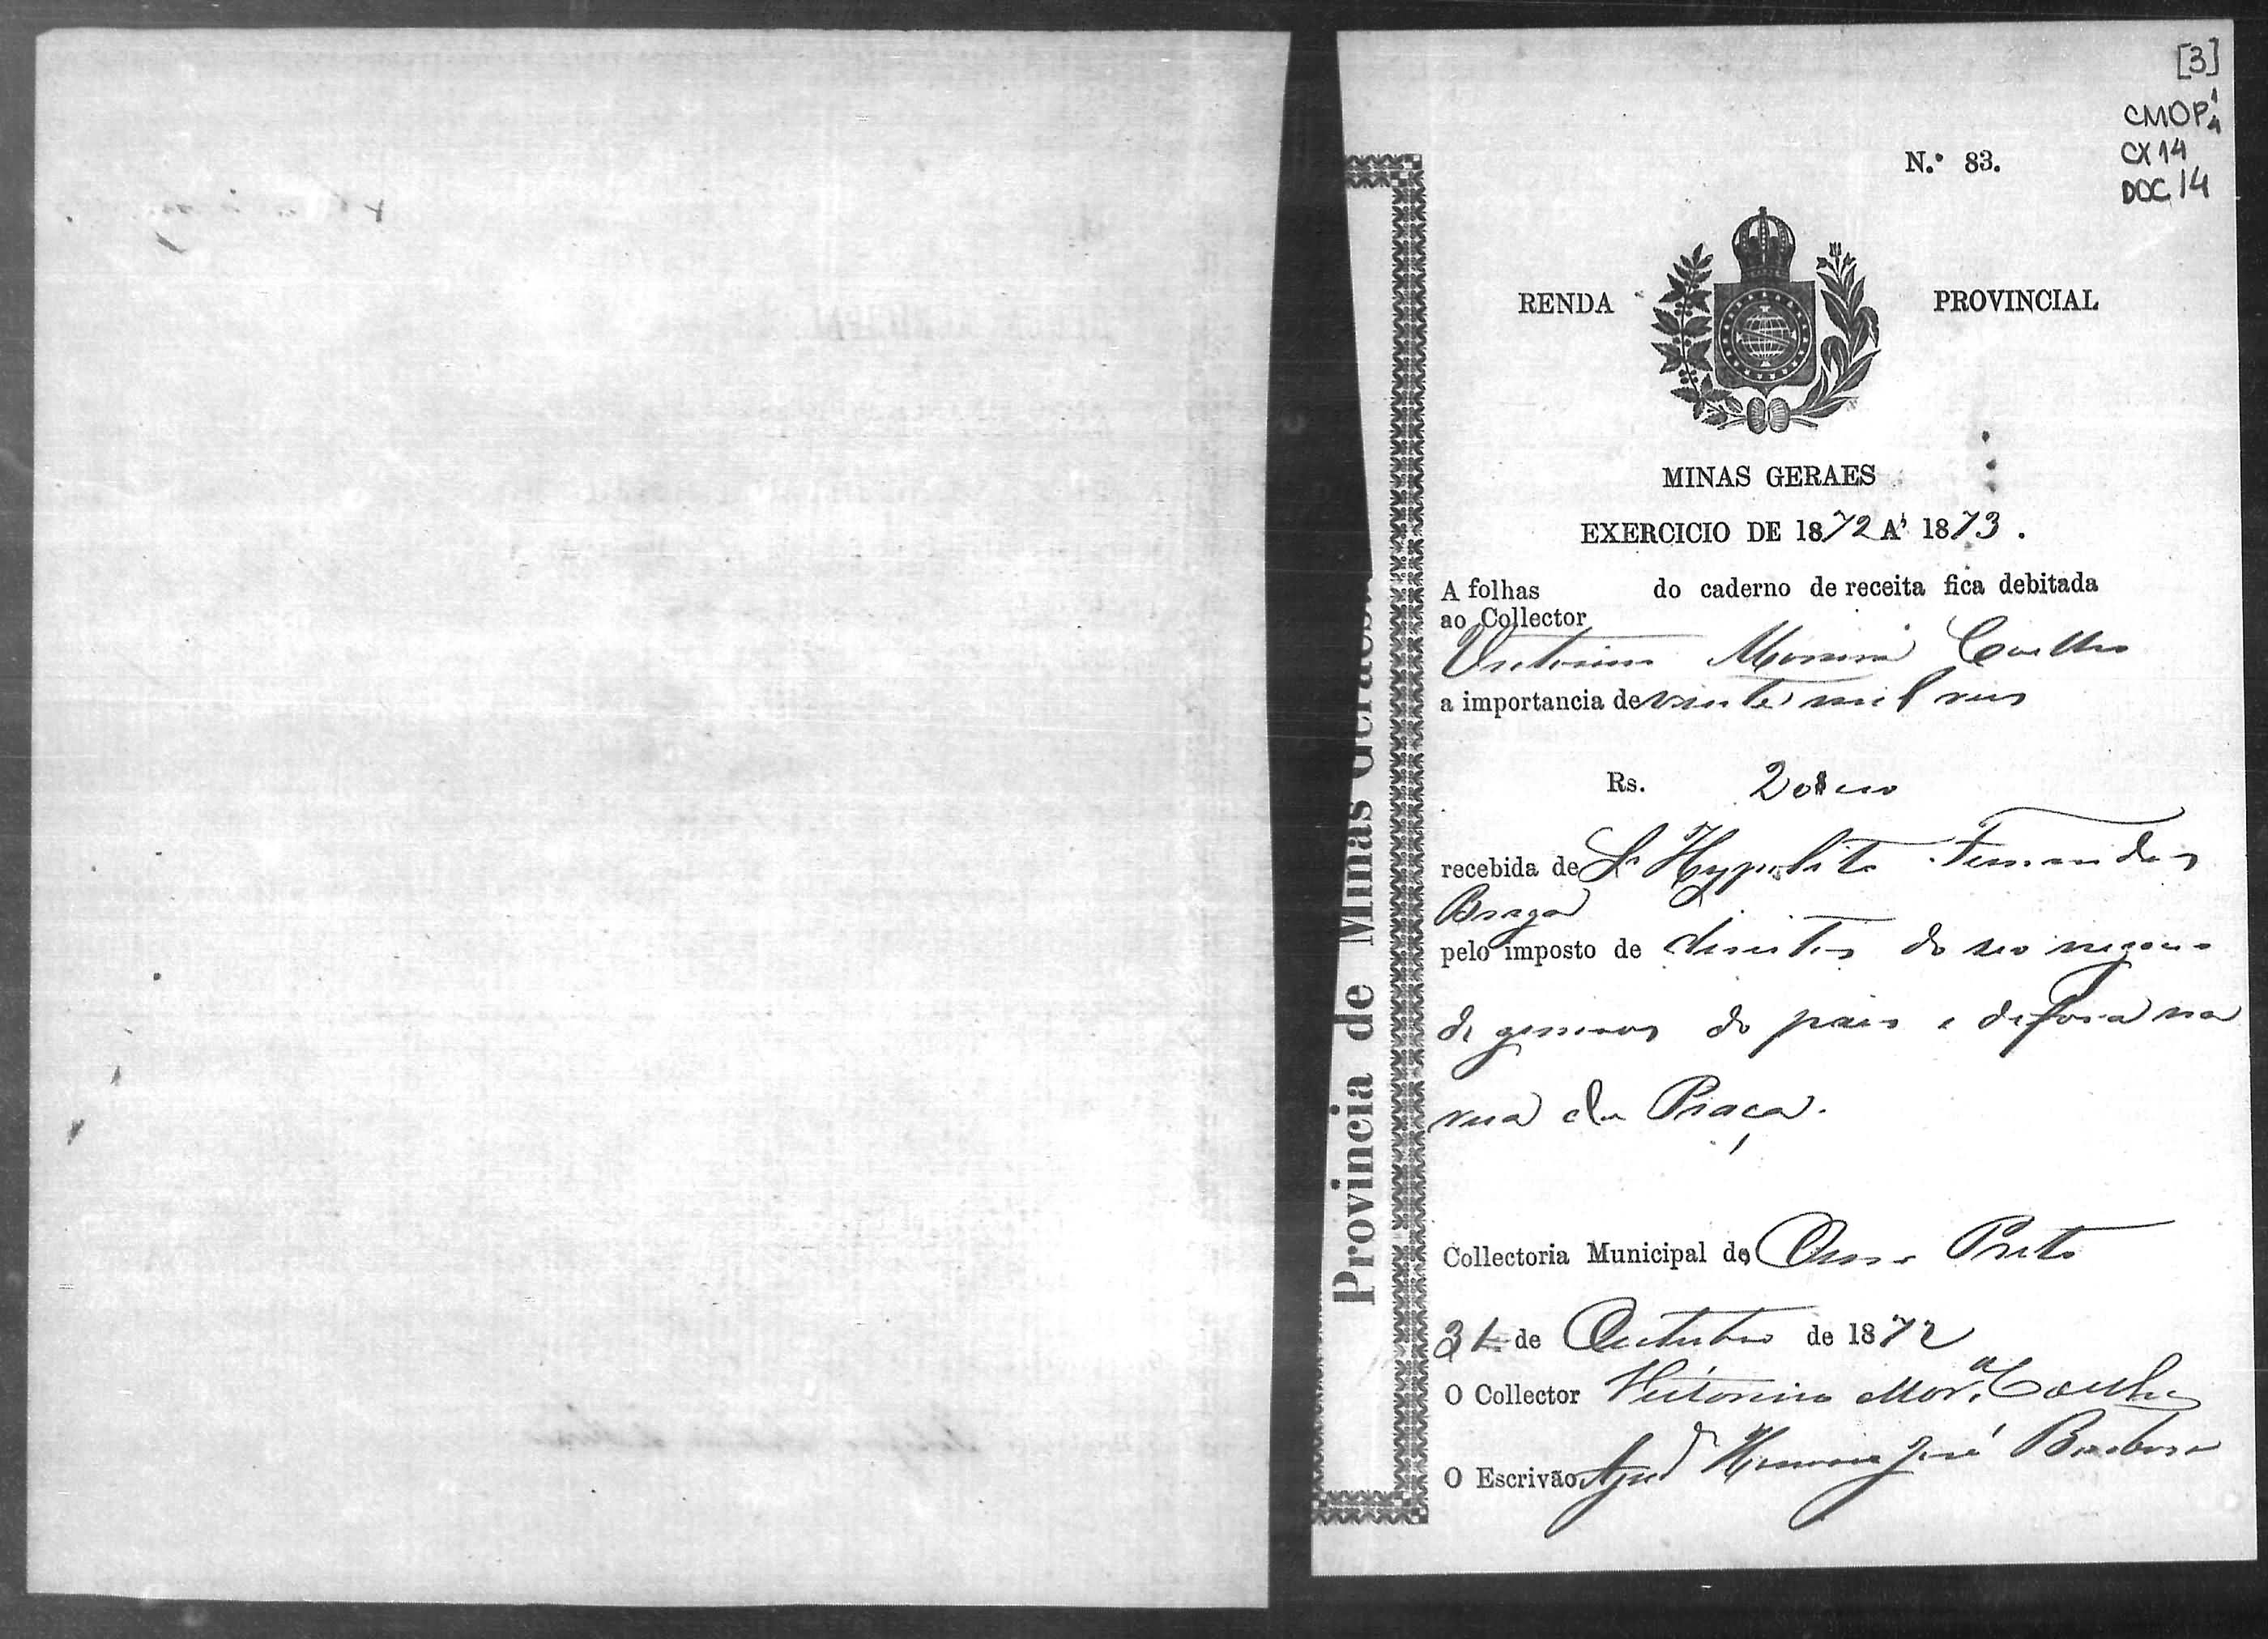 [3]
CMOP 1
4
CX 14
DOC 14
N.º 83.
RENDA PROVINCIAL
MINAS GERAES
EXERCICIO DE 1872 A' 1873.
A folhas do caderno de receita fica debitada
ao Collector
Victorino Moreira Coelho
a importancia de vinte mil reis
Rs. 20$000
recebida de Sr Hypolito Fernandes
Braga
pelo imposto de direitos do seo negocio
de generos do pais e de fora na
rua da Praça.
Collectoria Municipal de Ouro Preto
31 de Outubro de 1872
O Collector Victorino Morª Coelho
O Escrivão José Barbosa
Provincia de Minas Geraes.